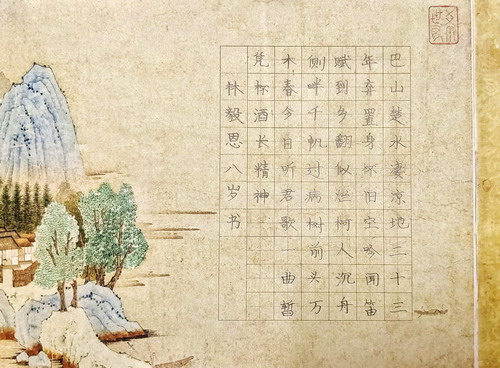 巴山楚水凄凉地二十三
年弃置身怀旧空吟闻笛
赋到乡翻似烂柯人沉舟
侧畔千帆过病树前头万
木春今日听君歌一曲暂
凭杯酒长精神
林毅思八岁书